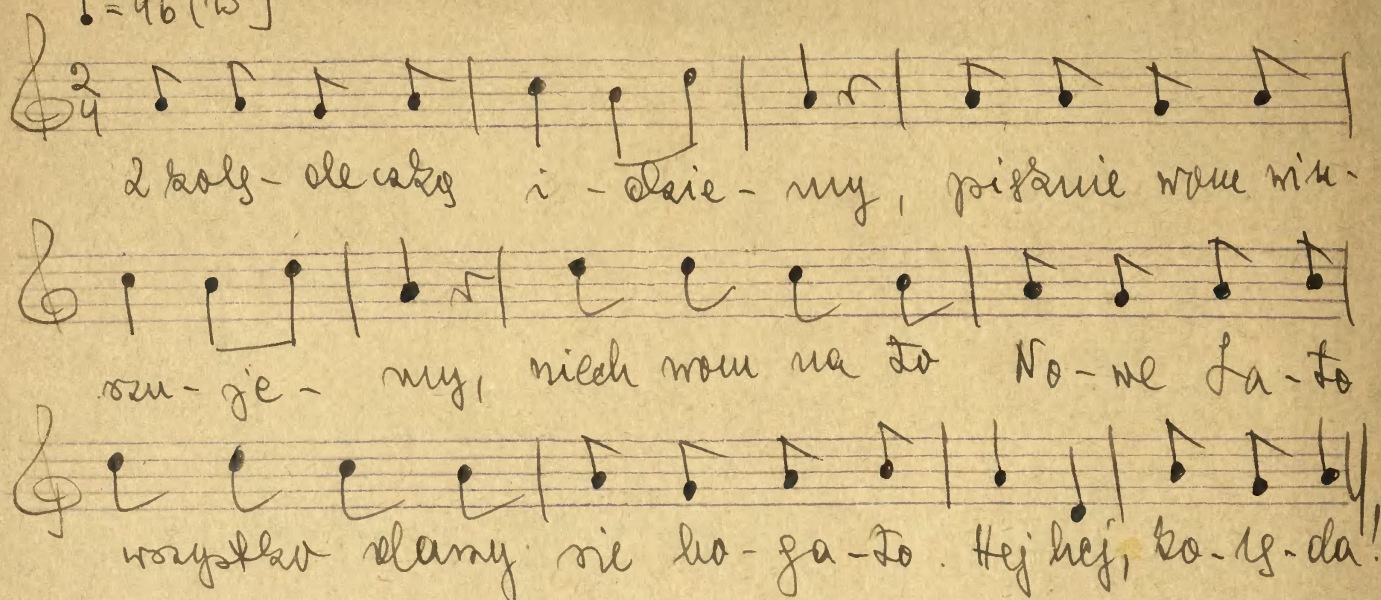 ♩ = 96 [w]
2
4
Z kolę-deczką i-dzie-my, pięknie wom win-
szu-je-my, niech wom na to No-we La-to
wszystko darzy sie bo-ga-to. Hej hej, ko-lę-da!